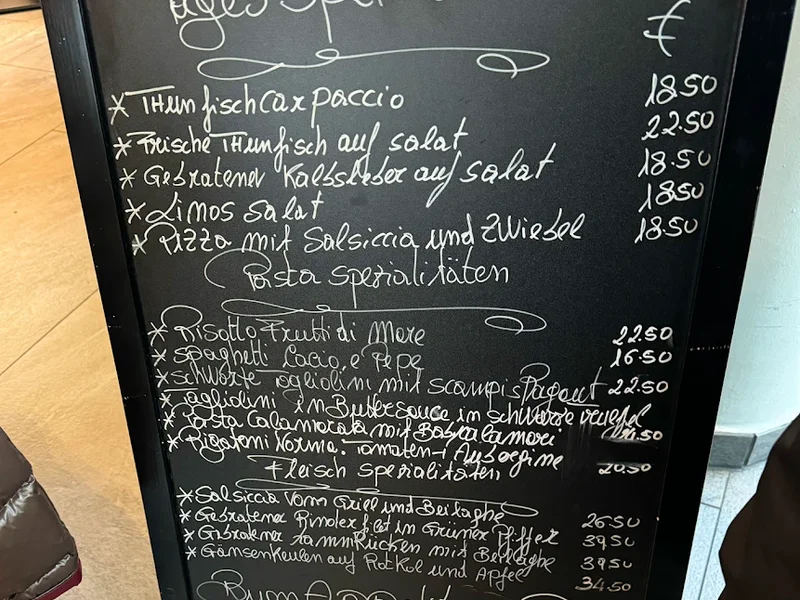 €
* THunfischcarpaccio 18.50
* Frische THunfisch auf salat 22.50
* Gebratener Kalbsleber auf salat 18.50
* Limos salat 18.50
* PIZZA mit Salsiccia und ZWiebel 18.50
Pasta spezialitäten
* Risotto Frutti di Mare 22.50
* spaghetti Cacio e Pepe 16.50
* schwarze Tagliolini mit scampis Ragout 22.50
* Tagliolini in Buttersauce in schwarze
* Pasta Calamarata mit Babykalamari
* Rigatoni Norma. Tomaten - Aubergine 20.50
Fleisch spezialitäten
* Salsiccia vom Grill und Beilaghe 26.50
* Gebratener Rinderfilet in Grüner Pfiffer 39.50
* Gebratener Lammrücken mit Beilaghe 39.50
* Gänsenkeulen auf Rotkol und Apfel 34.50